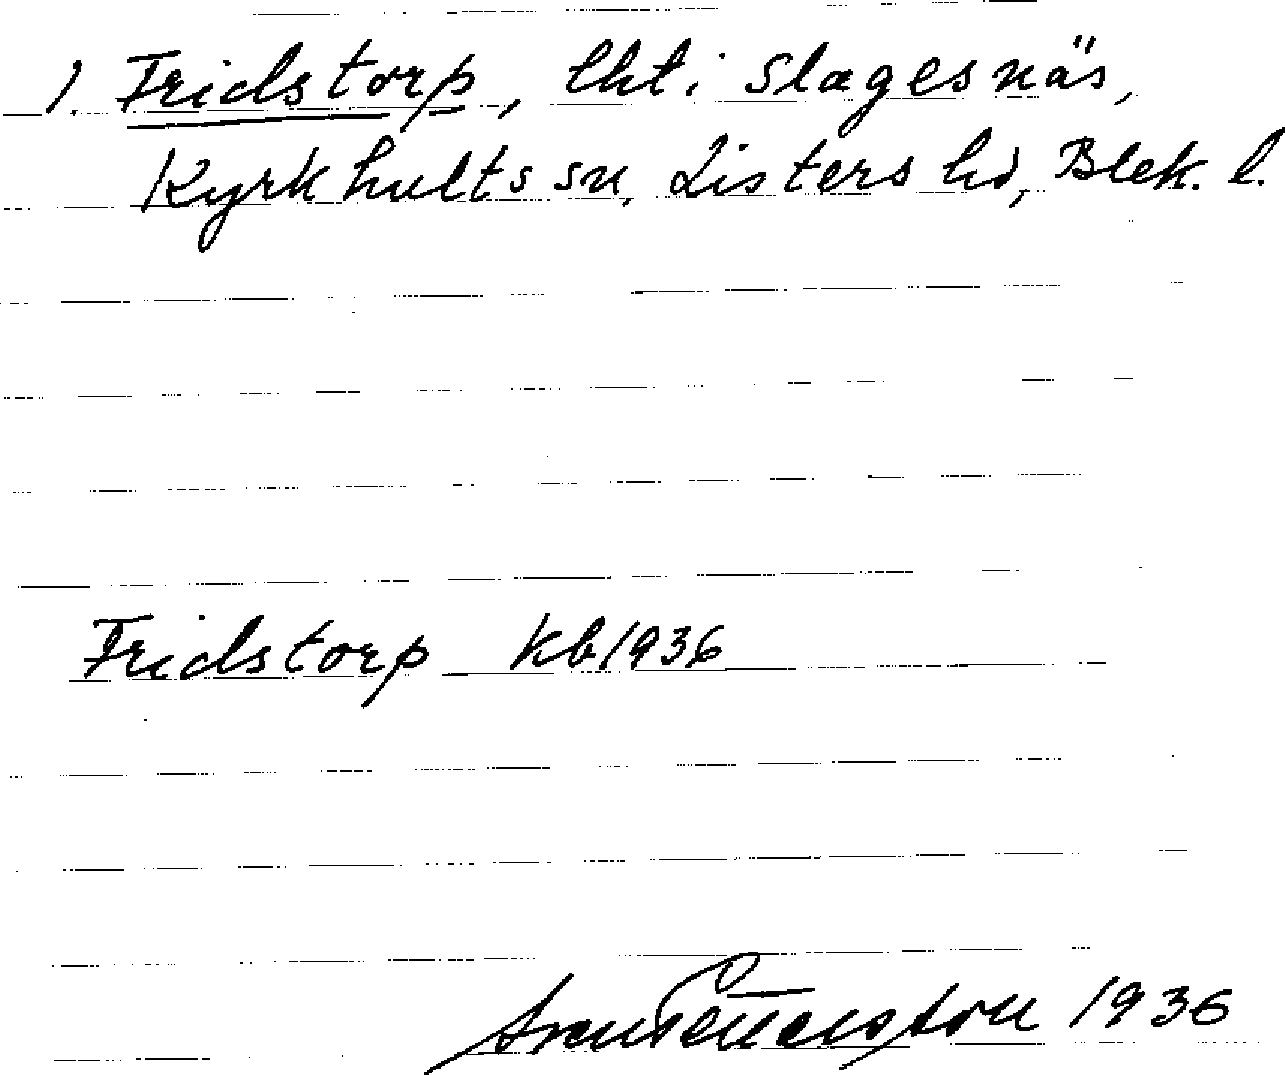 1. Fridstorp, lht i Slagesnäs,
Kyrkhults sn, Listers hd, Blek. l.
Fridstorp kb 1936
1936